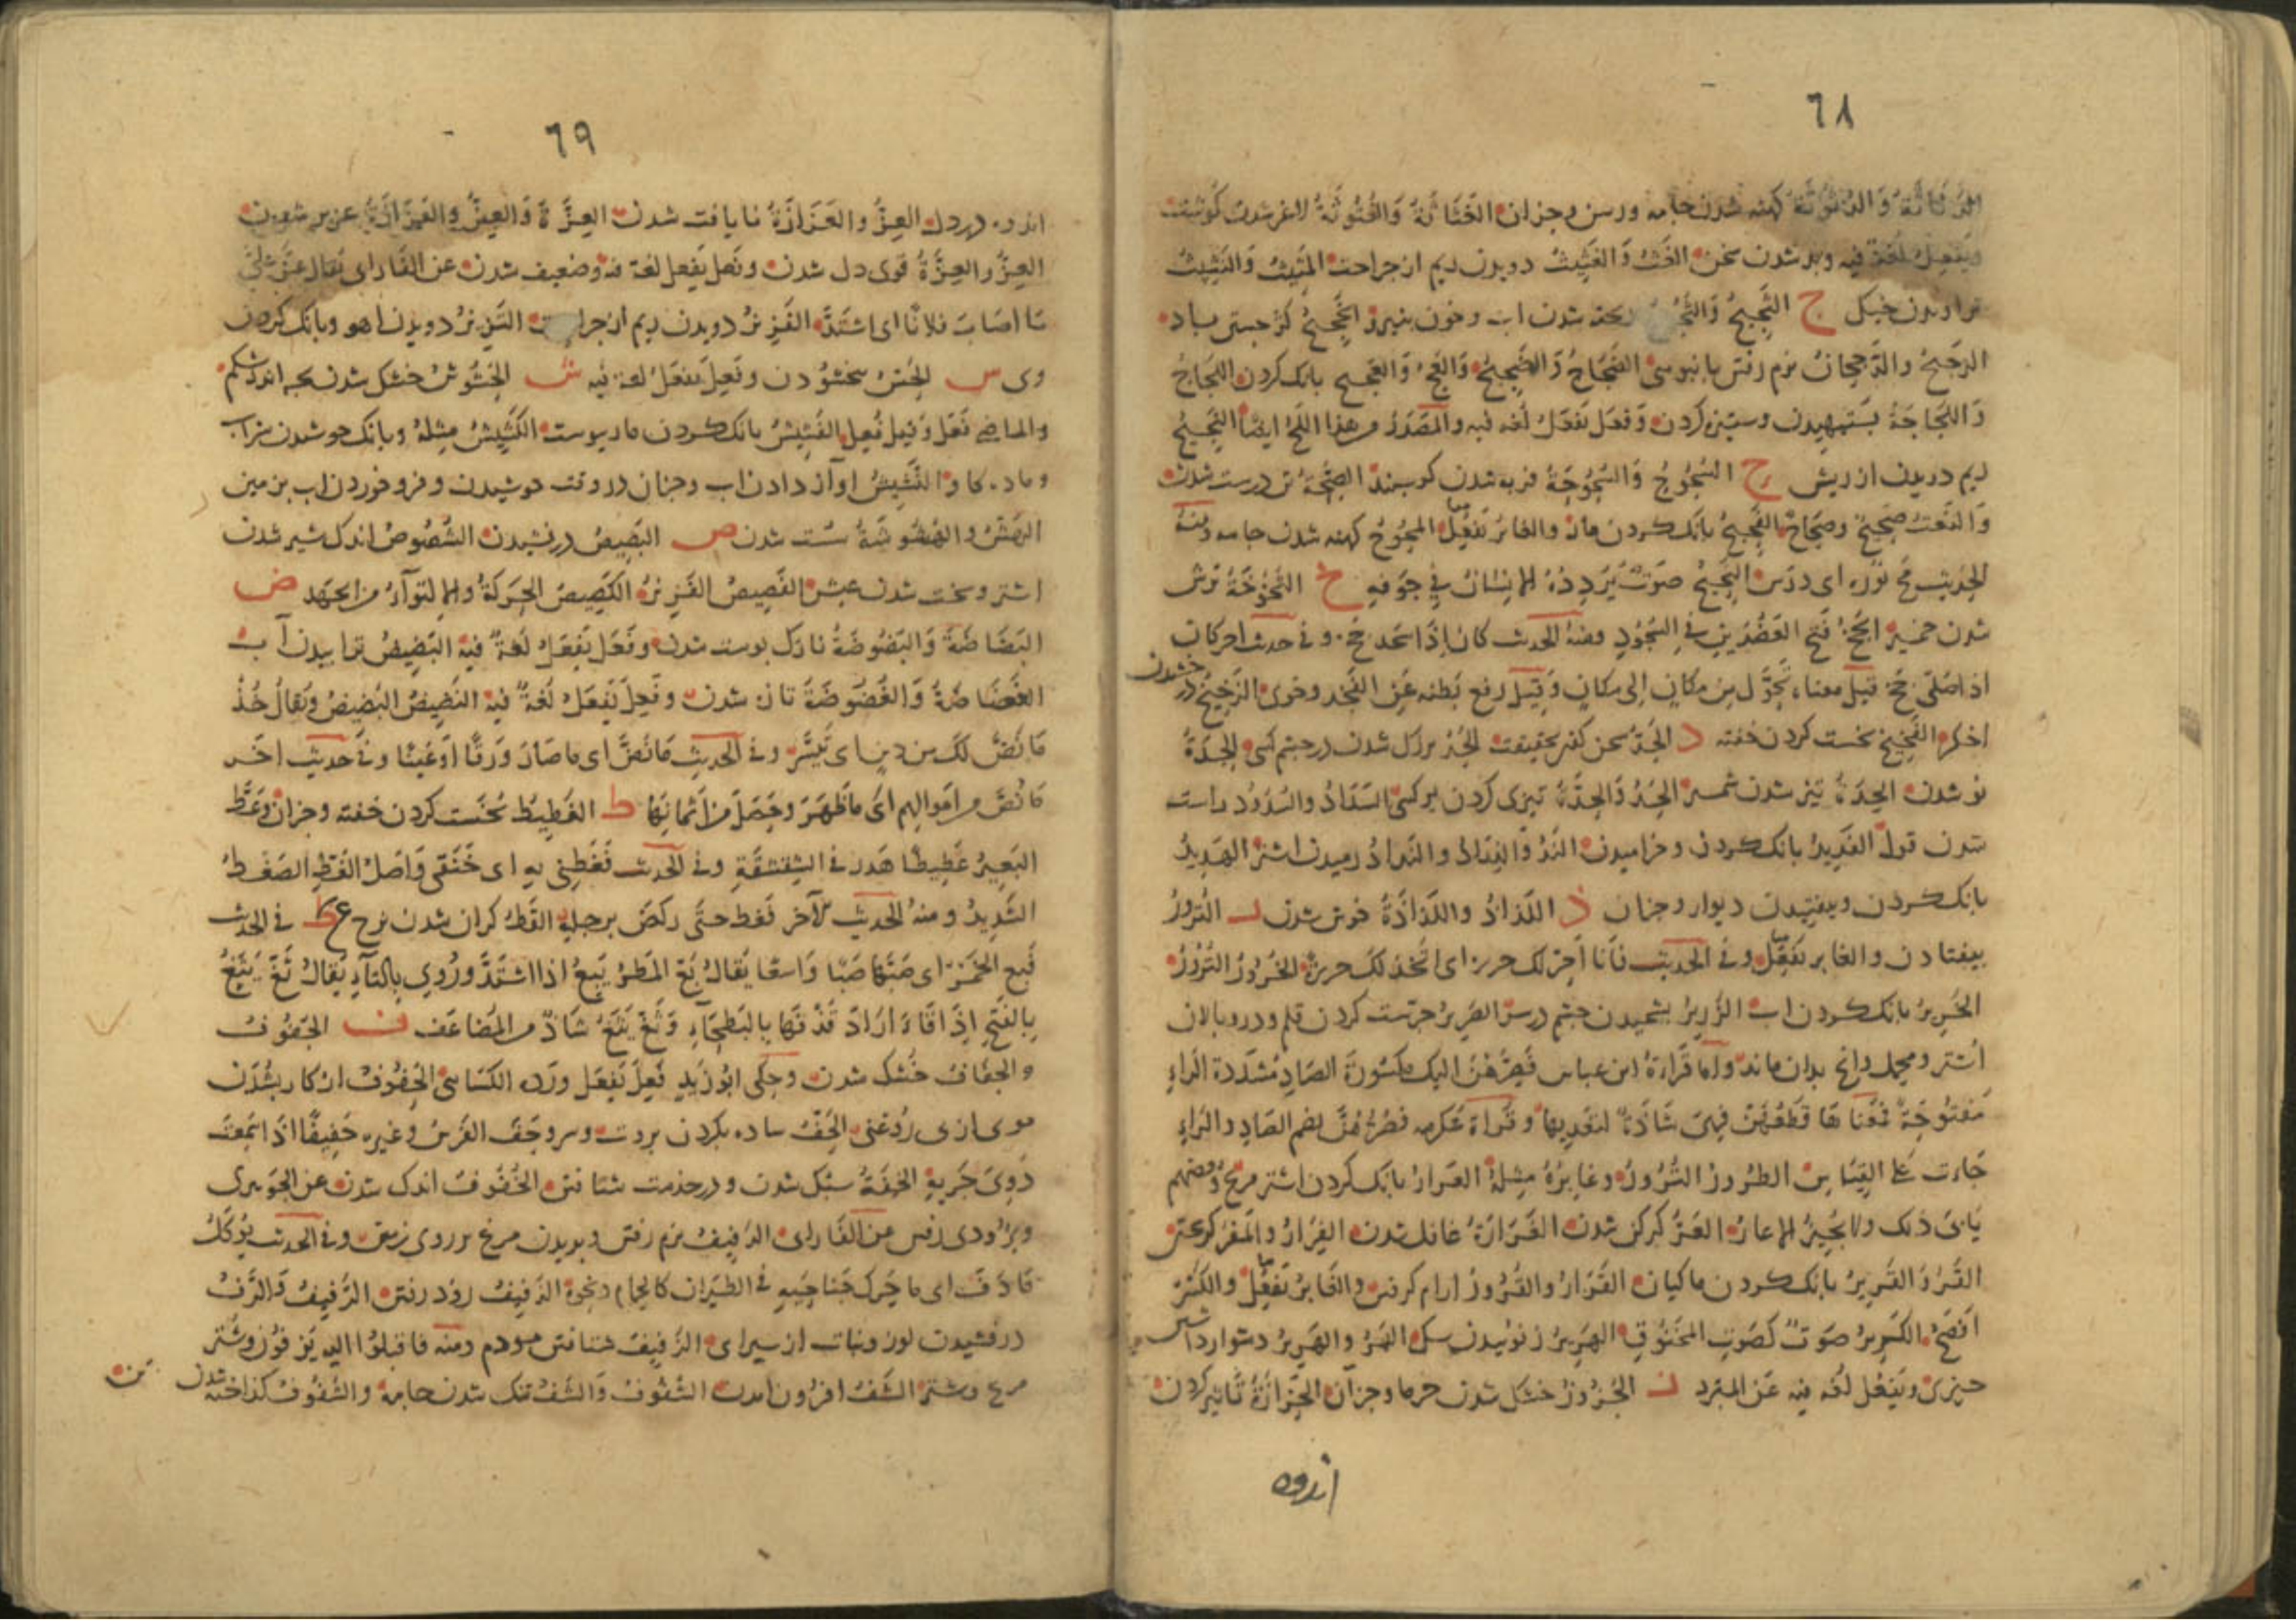 ٦٨
الرَّثَاثَةُ وَالرُّثُوثَةُ كهنه شدن جامه ورسن وجزان الغَثَاثَةُ وَالغُثُوثَةُ لاغر شدن كوشت
وَيَفعِلُ لُغَة فيه وبد شدن سخن الغَثُّ وَالغَثِيثُ دويدن ريم از جراحت المَثِيثُ وَالنَّثِيثُ
تراويدن خيكل ج الثَّجِيجُ وَالثَّجُّ شدن اب وخون بنيرو
الرَّجِيجُ والدَّجِجانُ نرم رفتن الضَّجَاجُ وَالضَّجِيجُ وَالعَجُّ وَالعَجِيج بانك كردن اللَّجَاجُ
وَاللَّجَاجَةُ بستيهيدن وستيزه كردن وَفَعَلَ يَفعَلُ لُغَه فيه والمَصدَرُ من هذا اللَّجُّ ايضًا النَّجِيجُ
ريم دويدن از ريش ح السُّحُوحُ وَالسُّحُوحَةُ فربه شدن كوسبند الصِّحَّةُ تن درست شدن
وَالنَّعتُ صَحِيحٌ وصَحَاحٌ الفَحِيحُ بانك كردن مار والغابر يَفعُلُ المُحُوحُ كهنه شدن جامه ومنهُ
الحديث مَحَّ نوره اى دَرَسَ النَّحِيحُ صَوتٌ يُرَدِّدُهُ الانسَانُ فِي جَوفِهِ خ
شدن خمير الجَخُّ فَتحُ العَضُدَينِ في السُّجُودِ ومنهُ الحديث كان إذَا سَجَد جَخَّ وفي حديث اخر كان
اذا صَلّى جَخَّ قيل معناه تَحَوَّل مِن مكانٍ إلى مكانٍ وَقيل رفع بَطنه عَنِ الفَخِذ وخوى الزَّخِيخُ درخشيدن
اخكر الفَخِيخُ نخست كردن خفته د الجِدُّ سخن كفتن بحقيقت الجَدُّ بزرك شدن در چشم كسى الجِدَّةُ
نو شدن الحِدَّةُ تيز شدن شمشير الحَدُّ وَالحِدَّةُ تيزى كردن بر كسى السَّدَادُ والسُّدُودُ راست
شدن قول الفَدِيدُ بانك كردن وخراميدن النَّدُّ وَالنِّدَادُ والنَّدادُ رميدن اشتر الهَدِيدُ
بانك كردن وبيفتيدن ديوار وجزان ذ اللَّذاذُ واللَّذاذَةُ خوش شدن ر التُّرُورُ
بيفتادن والغابر يَفعُل وفي الحديث
الخَرِيرُ بانك كردن اب الزَّرِيرُ
اشتر ومحمل وانچ بدان ماند وَاَمّا قَرَاءَةُ ابن عباس فَصِرَّهُنَّ اليك مكسُورَة الصَّادِ مُشَدَّدة الرَّاءِ
مَفتُوحَةً فَمَعنَاها قَطِّعهُنَّ فهىَ شَاذَّةٌ لتَعدِيها وقراة عكرمه فصُرَّهُنَّ بضم الصَّادِ والرَّاءِ
جَاءت عَلَى القِيَاسِ الطُّرُورُ الشُّرُورُ وغابِرُهُ مِثلهُ العِرارُ بانك كردن اشتر مرغ وبعضهم
يَابَى ذلك ولا يُجِيزُ الا عارَّ العَرُّ كركن شدن الغَرَارَةُ غافل شدن الفِرَارُ والمَفَرُّ كريختن
القَرُّ وَالقَرِيرُ بانك كردن ماكيان القَرَارُ والقُرُورُ ارام كرفتن والغَابرُ يَفعُلُ والكسرُ
اَفصَحُ الكَرِيرُ صَوتٌ كَصَوتِ المخنُوقِ الهَرِيرُ زنوئيدن سك الهَرُّ والهَرِيرُ دشوار داشتن
چيزى ويَفعُل لُغَه فيه عَن المبَرد ز الجُزُوزُ خشك شدن خرما وجزآن الحَزَازَةُ تاثير كردن
اندوه
٦٩
اندوه در دل العِزُّ والعَزَازَةُ نايافت شدن العِزَّةُ وَالعِزُّ والعَزَازَةُ عزيز شدن
العِزُّ والعِزَّةُ قوى دل شدن وفَعِل يَفعَل لغة فيه وضعيف شدن عن الفارابى يُقال عَزَّ عَلَيَّ
مَا اصَابَ فلانًا اى اشتَدَّ الفَزِيزُ دويدن ريم از جراحت النَّزِيزُ دويدن اهو وبانك كردن
وى س الحَسُّ بخشودن وفَعِلَ يَفعَلُ لغة فيه ش الحُشُوشُ خشك شدن بچه اندر شكم
والماضى فَعَل وَفَعِلَ فُعِل الفَشِيشُ بانك كردن مار بپوست الكَشِيشُ مِثلهُ وبانك جوشيدن شراب
وماده كاو النَّشِيشُ اواز دادن اب وجزان در وقت جوشيدن وفرو خوردن اب بزمين
الهَشُّ والهُشُوشَةُ سست شدن ص البَصِيصُ درفشيدن الشُّصُوصُ اندك شير شدن
اشتر وسخت شدن عيش الفَصِيصُ الفَزِيزُ الكَصِيصُ الحَرَكَةُ والالتواءُ من الجَهدِ ض
البَضَاضَةُ وَالبُضُوضَةُ نازك پوست شدن وفَعَل يَفعَلُ لُغةٌ فيه البَضِيضُ ترابيدن آب
الغَضَاضَةُ وَالغُضُوضَةُ تازه شدن وفَعِلَ يَفعَلُ لُغةٌ فيه النَّضِيضُ البَضِيضُ ويُقالُ خُذ
مَا نَضَّ لَكَ مِن دينٍ اى تَيَسَّر وفي الحديثِ مَا نَضَّ اى ما صَارَ وَرَقًا اَوعَينًا وفي حديث اخَر
مَا نَضَّ من امَوالِهم اى مَا ظَهَرَ وحَصَلَ من اَثمانِهَا ط الغَطِيطُ نخست كردن خفته وجزان وغَطَّ
البَعِيرُ غَطِيطًا هَدَرَ في الشِّقشِقَةِ وفي الحديث فَغَطَّنِي بِهِ اى خَنَقَنى وَاَصلُ الغَطِّ الضَغطُ
الشَّدِيدُ ومنهُ الحديث الآخر فَغط حتَّى رَكَضَ برجلِهِ القَطُّ كران شدن نرخ ع في الحديث
اى صَبَّها صَبًّا وَاسعًا يُقالُ بَعَّ المَطَرُ يَبِعُّ اذا اشتَدَّ ورُوِي بالثاءِ يُقالُ ثَعَّ يَثِعُّ
بالفَتحِ اِذَا قَاءَ اَرَادَ قَذفَهَا بالبَطحَاءِ وَثَعَّ يَثَعُّ شَاذٌّ من المضاعَف ف الجُفُوفُ
والجَفَافُ خشك شدن وحكَى ابُو زيدٍ فَعِلَ يَفعَل وَرَدَّه الكسَاىُّ الحُفُوفُ از كار بشُدَن
موى از بى رَوغنى الحَفُّ ساده بكردن بروت وسر وحَفَّ الفَرَسُ وغيره حَفِيفًا اذَا سَمِعتَ
دَوِيَّ جَريهِ الخِفَّةُ سبك شدن ودر خدمت شتافتن الخُفُوفُ اندك شدن عن الجَوهَرى
وبزودى رفتن عن الفارابى الدَّفِيفُ نرم رفتن وپريدن مرغ بر روى زمين وفي الحديث يُؤكَلُ
مَا دَفَّ اى ما حَرَّكَ جَنَاحَيهِ في الطَّيَران كالحَمَام ونحوهِ الذَّفِيفُ زود رفتن الرَّفِيفُ وَالرَّفُّ
درفشيدن لون ونبات از سيرابى الزَّفِيفُ شتافتن مردم ومنه فاقبلوا اليه يَزِفُّونَ وشتر
مرغ وشتر الشَّفُّ افزون امدن الشُّفُوفُ وَالشَّفُّ تنك شدن جامه والشُّفُوفُ كداخته شدن تن